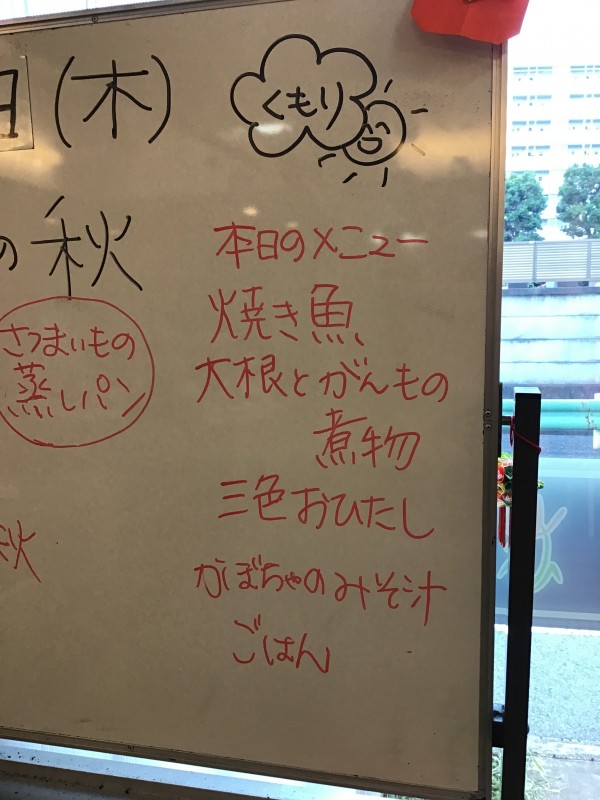 日(木)
くもり
の秋
さつまいもの
蒸しパン
秋
本日のメニュー
焼き魚
大根とがんもの
煮物
三色おひたし
かぼちゃのみそ汁
ごはん